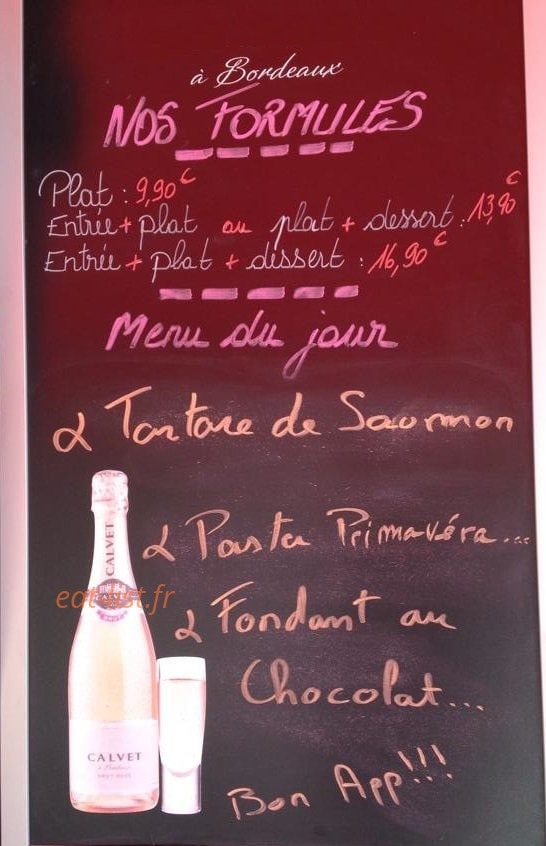 à Bordeaux
NOS FORMULES
Plat : 9,90€
Entrée + plat ou plat + dessert : 13,90€
Entrée + plat + dessert : 16,90€
Menu du jour
Tartare de Saumon
Pasta Primavéra...
Fondant au
Chocolat...
Bon App!!!
CALVET
CALVET
BRUT
eat-list.fr
CALVET
à Bordeaux
BRUT ROSÉ